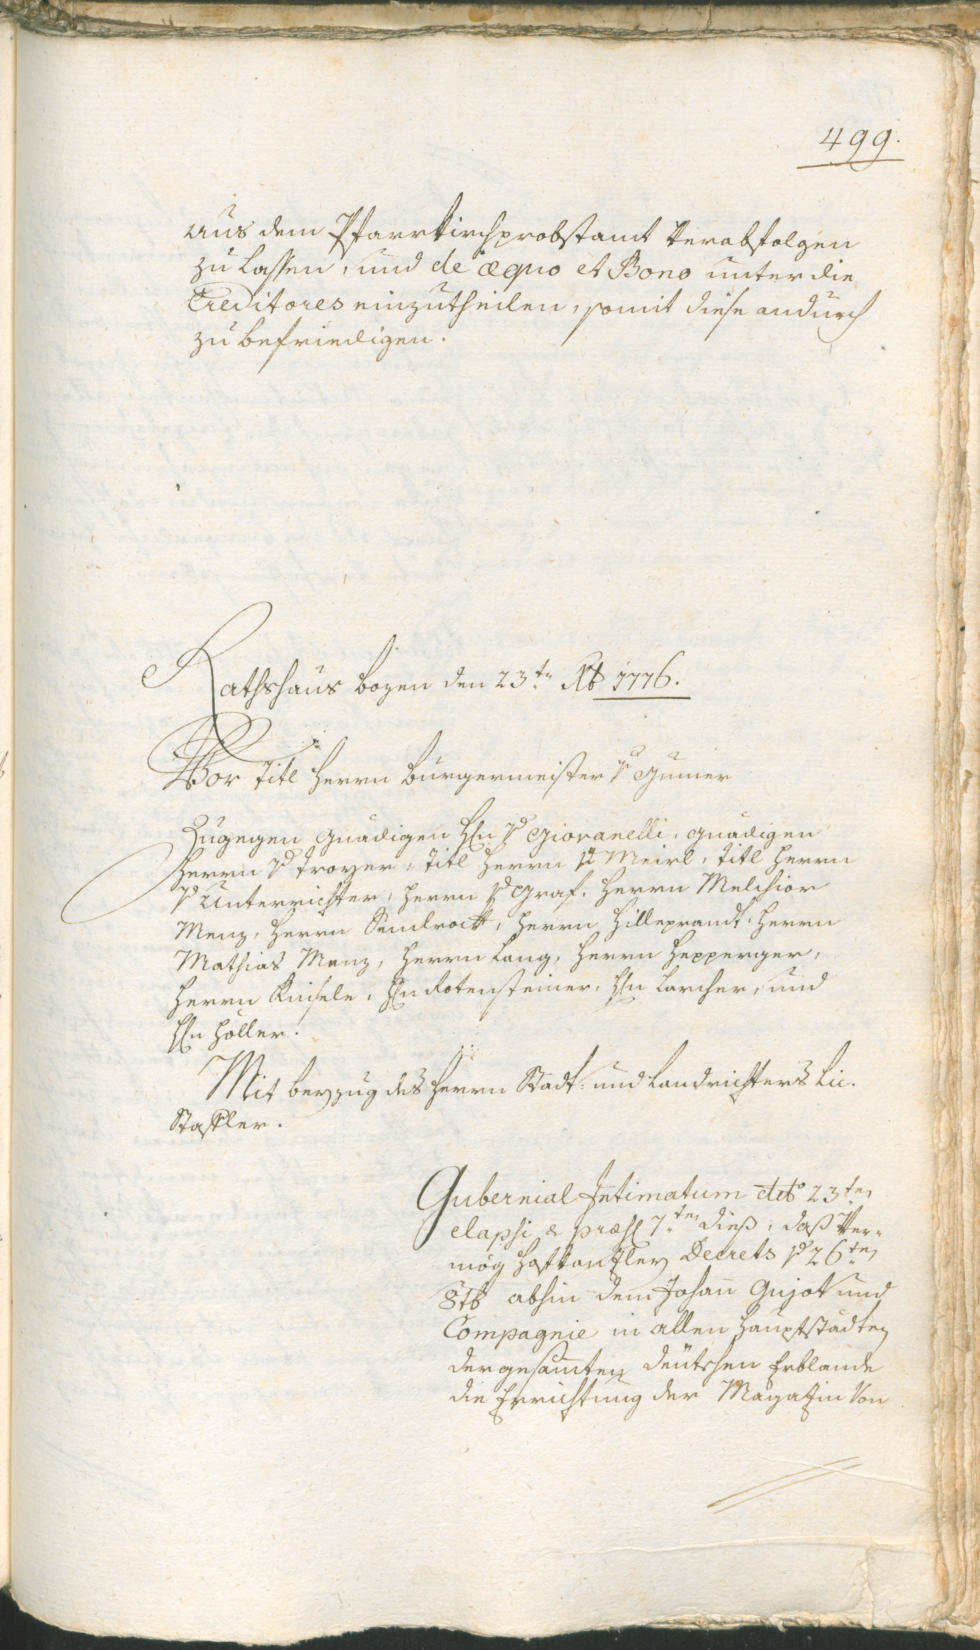 499.
aus dem Pfarrkirchprobstamt verabfolgen
zu lassen, und de æquo et Bono unter die
Creditores einzutheilen, somit diese andurch
zu befriedigen.
Rathshaus bozen den 23.ten Xb 1776.
Vor titl herrn burgermeister v Gumer
Zugegen gnädigen H[err]n v Giovanelli, gnädigen
herrn v Troyer, titl herrn v Meirl, titl herrn
v Unterrichter, herrn v Graf, herrn Melchior
Menz, herrn Sendrock, herrn Hilleprandt, herrn
Mathias Menz, herrn Lang, herrn Hepperger,
herrn Kinsele, Hn Rotensteiner, Hn Larcher, und
Hn Höller.
Mit beyzug des herrn Stadt- und Landrichters Lic.
Staffler.
Gubernial Intimatum ddto 23.ten
elapsi & præs 7.ten dieß, daß Ver-
mög Hofkanzley Decrets v 26.ten
8tb abhin dem Johan Gujot und
Compagnie in allen Hauptstädten
der gesamten deütschen Erblande
die Errichtung der Magazin von